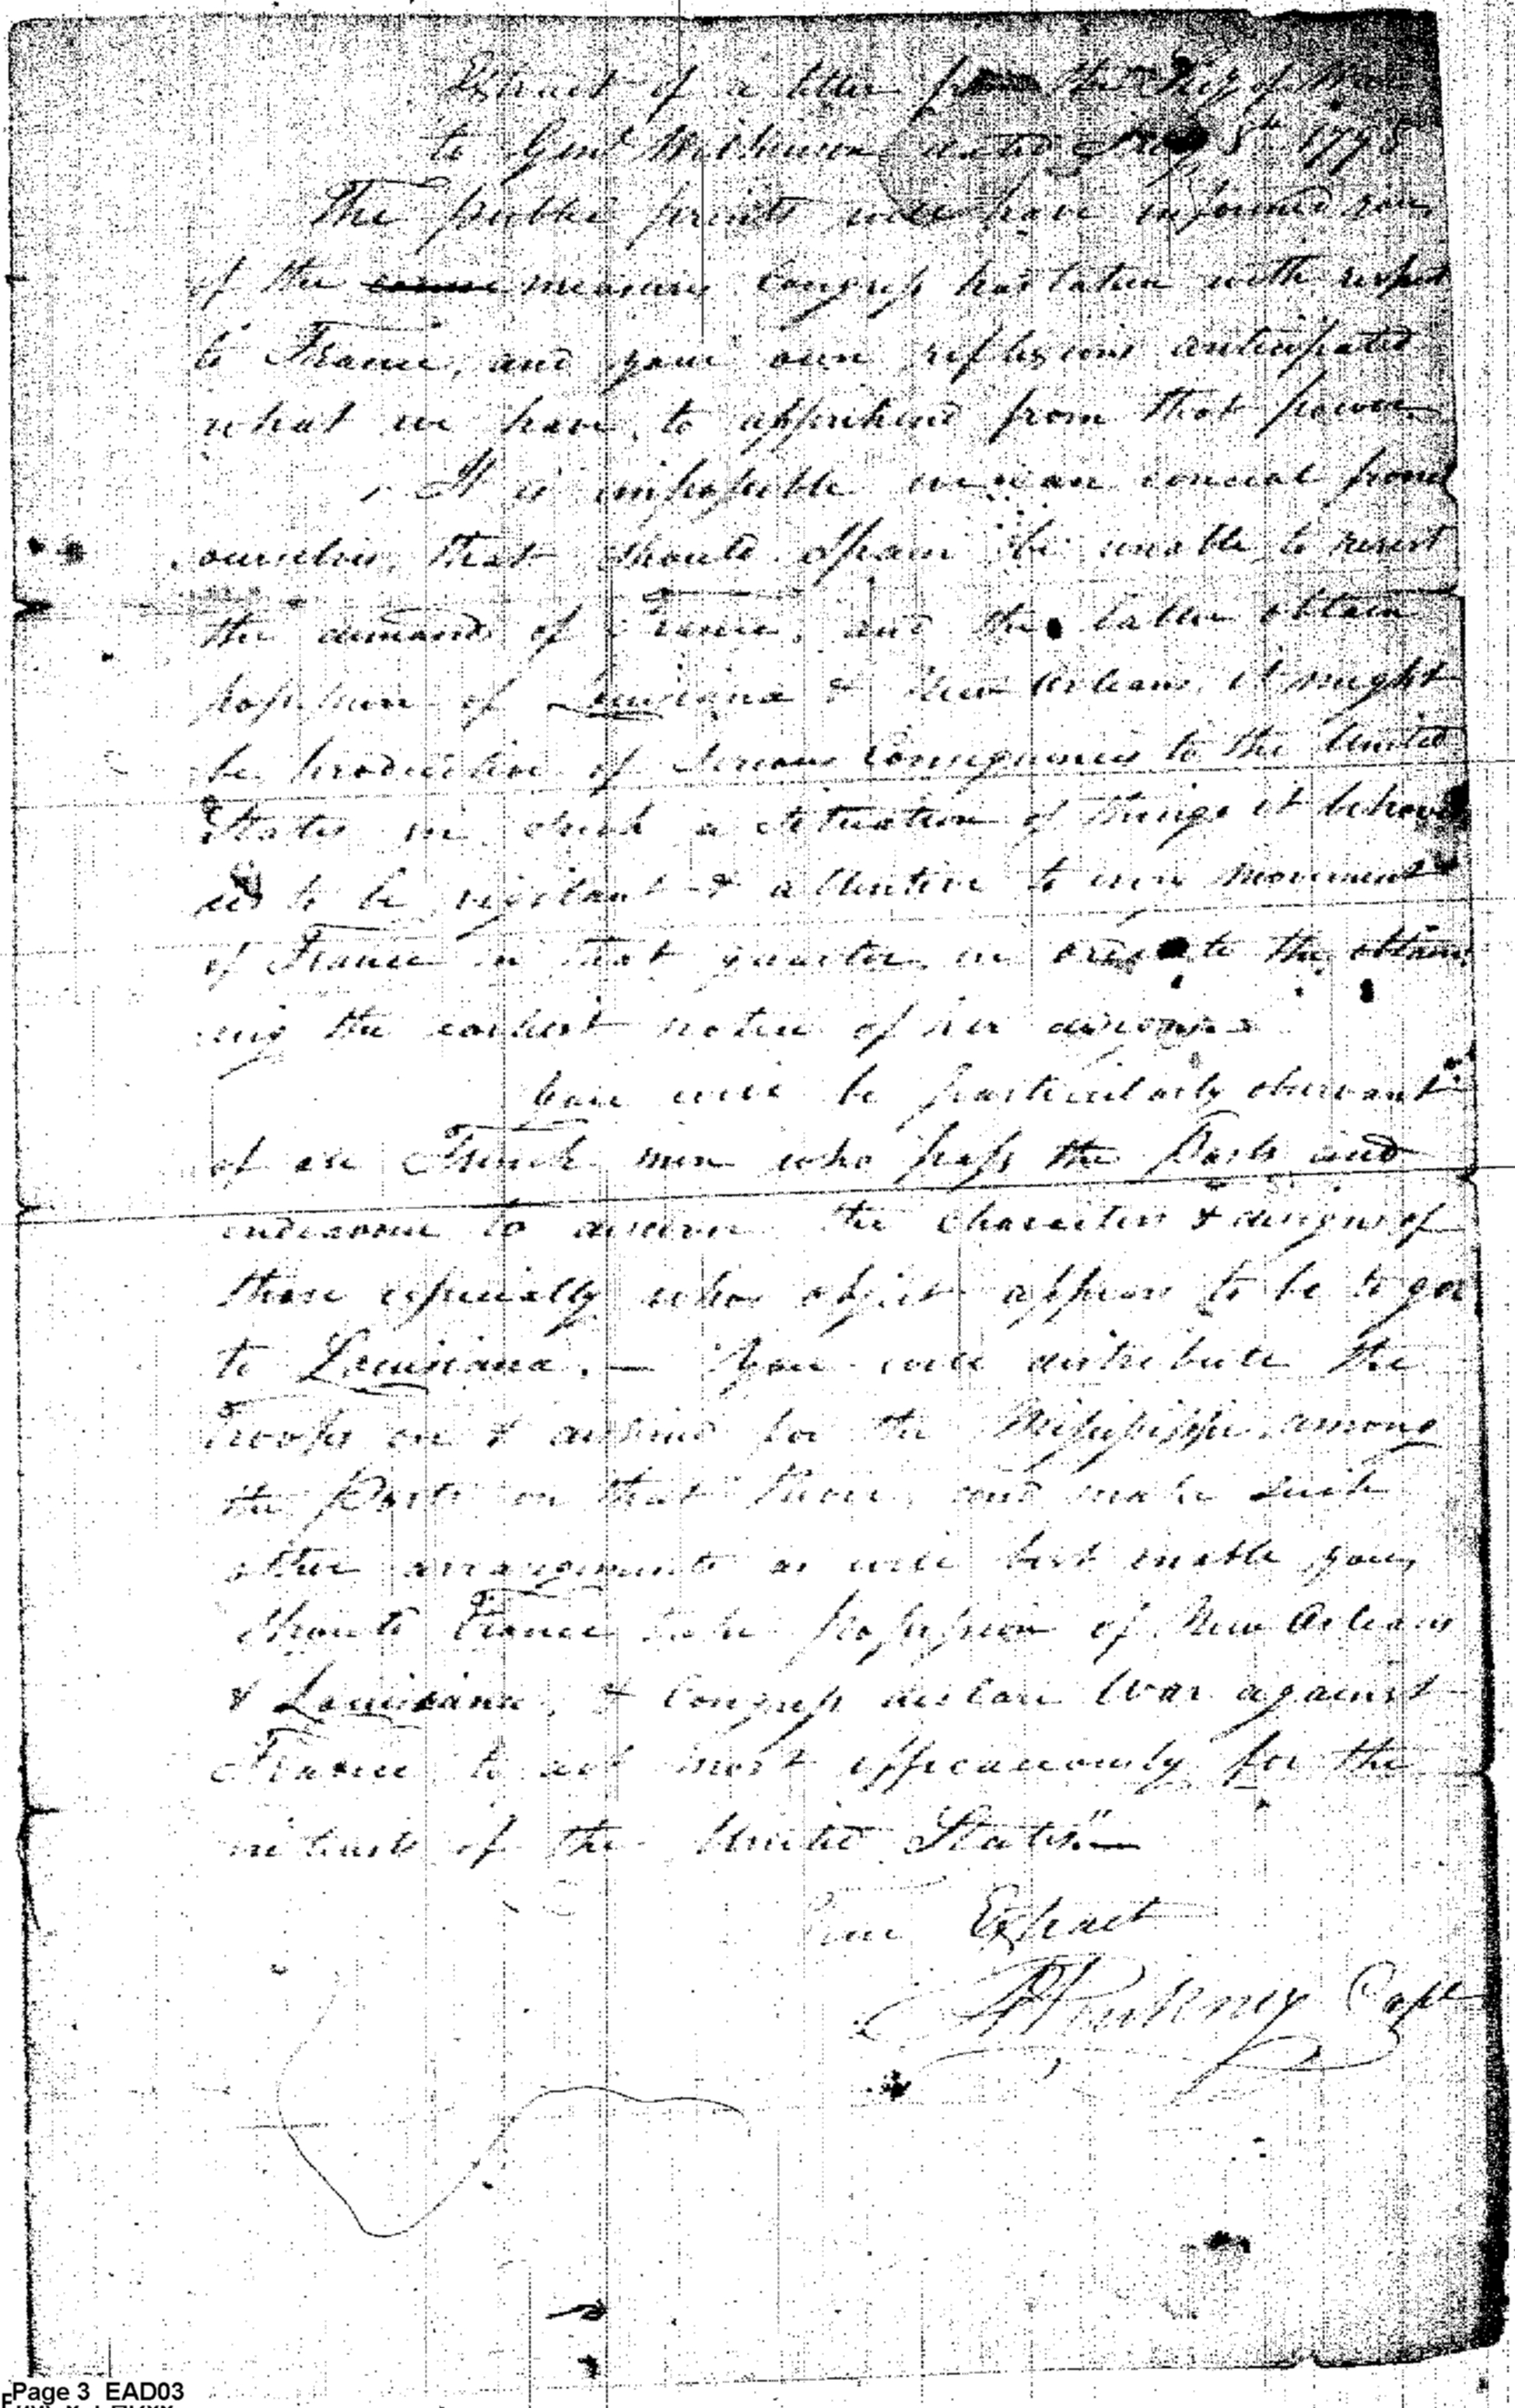 Extract of a letter from the Secy of War
to Genl Wilkinson dated 5th 1798
The public prints will have informed you
of the measures Congress has taken with respect
to France, and your own reflexions anticipated
what we have to apprehend from that power.
It is impossible we can conceal from
ourselves, that should Spain be unable to resist
the demands of France, and the latter obtain
possession of Louisiana & New Orleans, it might
be productive of serious Consequences to the United
States in such a situation of things it behoves
us to be vigilant & attentive to every movement
of France in that quarter, in order to the obtain
ing the earliest notice of her designs
You will be particularly observant
of all French men who pass the Posts and
endeavour to discern the characters & designs of
those especially whose object appears to be to go
to Louisiana. — You will distribute the
Troops on & destined for the Mississippi among
the Posts on that River, and make such
other arrangements as will best enable you,
should France take possession of New Orleans
& Louisiana, & Congress declare War against
France to act most efficaciously for the
interests of the United States."—
True Extract
Pinkney Capt
Page 3 EAD03